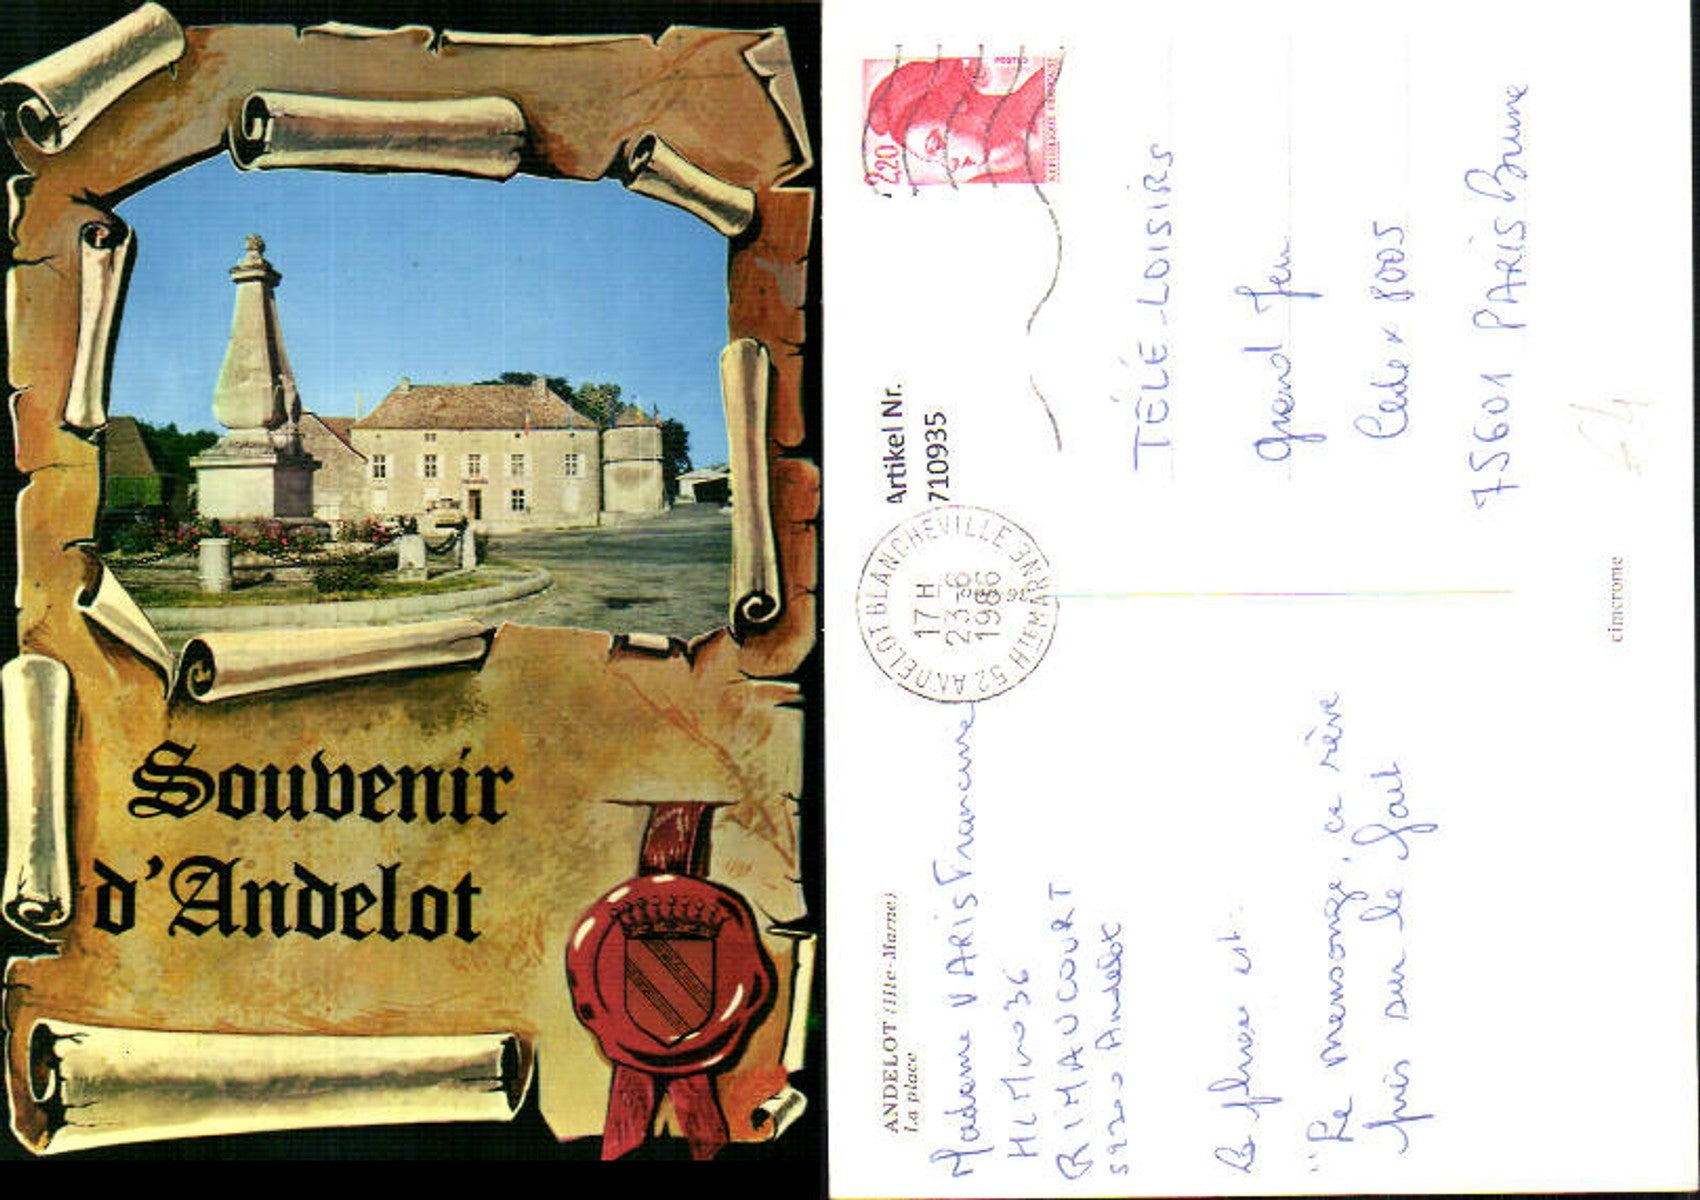 Souvenir
d'Andelot
ANDELOT (Hte-Marne)
La place
Madame VARIS Francine
HLM no 36
RIMAUCOURT
52200 Andelot
La phrase est:
"Le mensonge, ce rêve
pris sur le fait
Artikel Nr.
710935
52 ANDELOT BLANCHEVILLE HTE MARNE
17 H
23-6
1986
2,20
POSTES
REPUBLIQUE FRANÇAISE
TÉLÉ-LOISIRS
Grand Jeu
Cedex 8005
75601 PARIS Brune
cimcrome